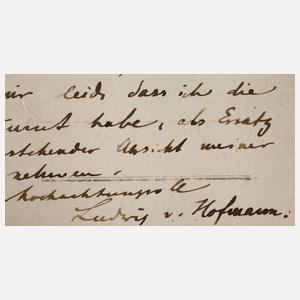 mir leids dass ich die
habe, als Ersatz
stehender Ansicht meiner
nehmen,
hochachtungsvoll
Ludwig v. Hofmann.